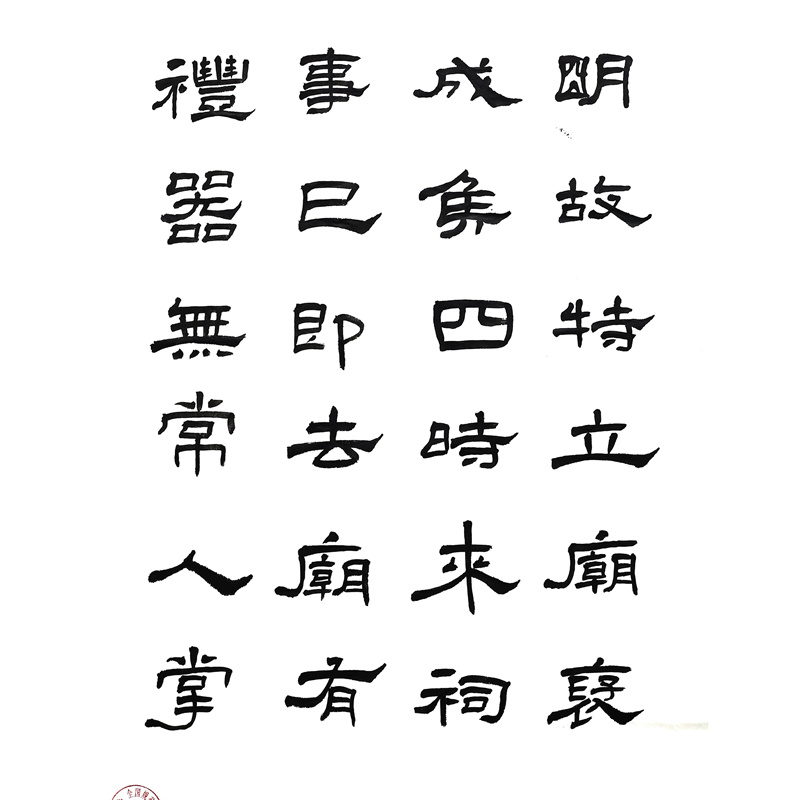 明故特立廟褒
成侯四時來祠
事已即去廟有
禮器無常人掌